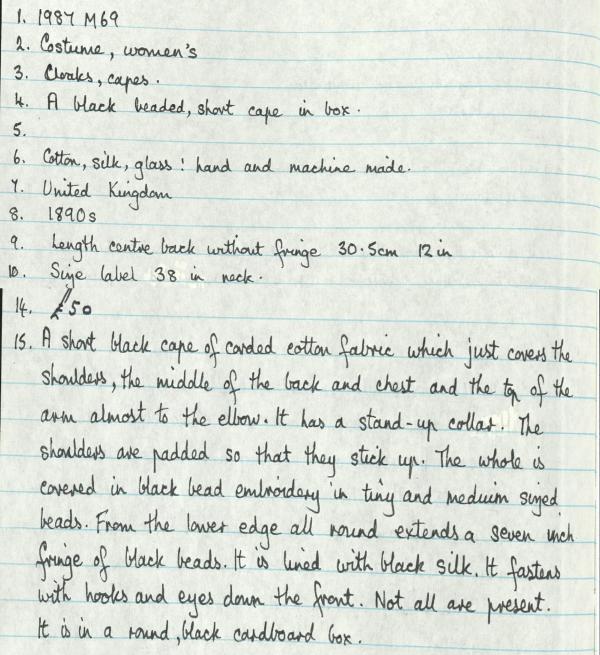 1. 1987 M69
2. Costume, women's
3. Cloaks, capes.
4. A black beaded, short cape in box.
5.
6. Cotton, silk, glass: hand and machine made.
7. United Kingdom
8. 1890s
9. Length centre back without fringe 30.5cm 12in
10. Size label 38 in neck.
14. £50
15. A short black cape of corded cotton fabric which just covers the
shoulders, the middle of the back and chest and the top of the
arm almost to the elbow. It has a stand-up collar. The
shoulders are padded so that they stick up. The whole is
covered in black bead embroidery in tiny and meduim sized
beads. From the lower edge all round extends a seven inch
fringe of black beads. It is lined with black silk. It fastens
with hooks and eyes down the front. Not all are present.
It is in a round, black cardboard box.